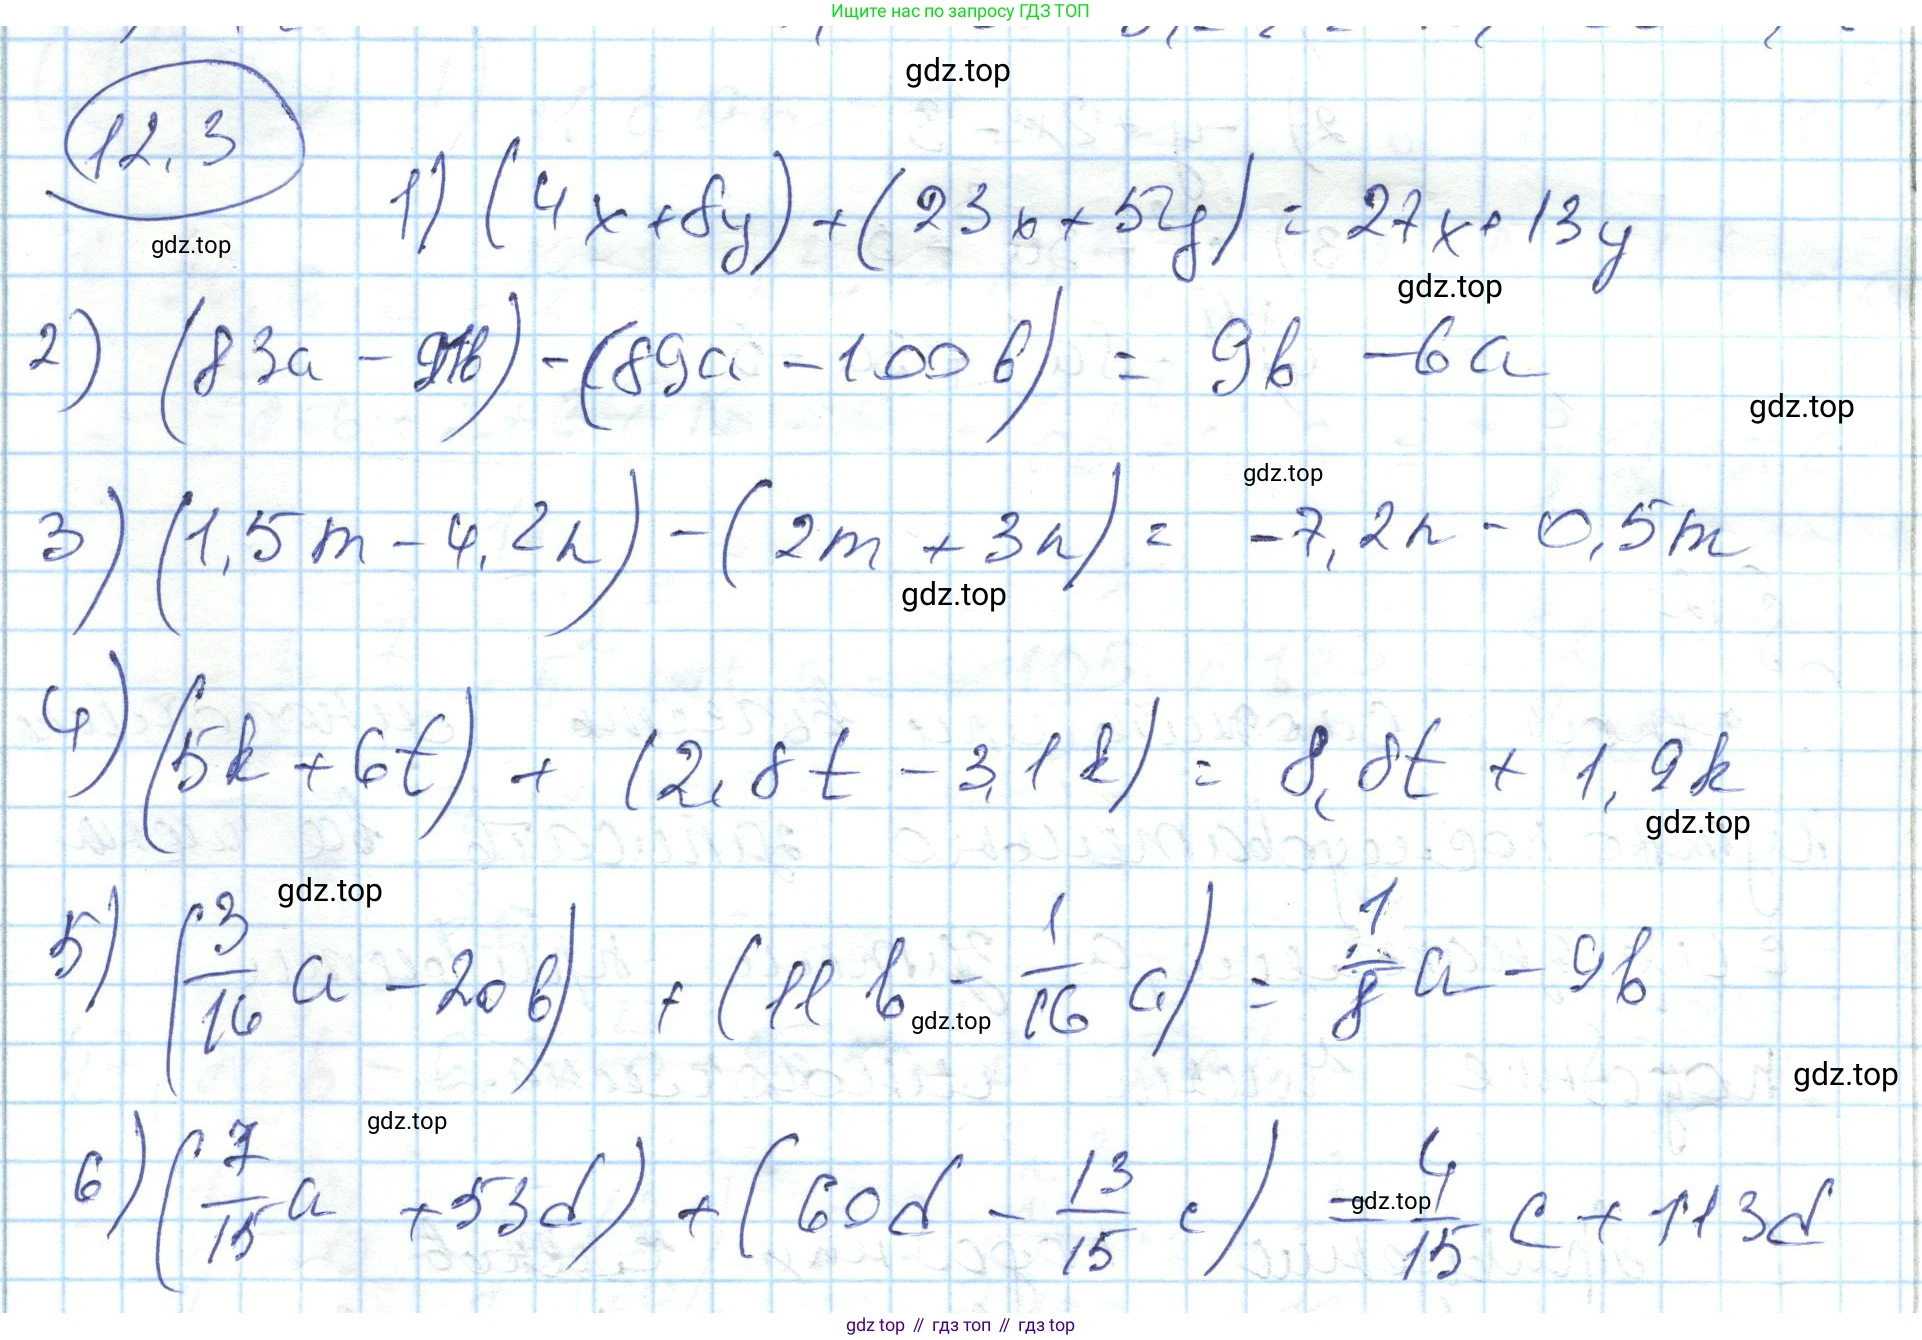 Ищите нас по запросу ГДЗ ТОП
gdz.top
12.3
1) (4x + 8y) + (23x + 5y) = 27x + 13y
gdz.top
gdz.top
2) (83a - 91b) - (89a - 100b) = 9b - 6a
gdz.top
gdz.top
3) (1,5m - 4,2n) - (2m + 3n) = -7,2n - 0,5m
gdz.top
4) (5k + 6t) + (2,8t - 3,1k) = 8,8t + 1,9k
gdz.top
gdz.top
5) (3/16 a - 20b) + (11b - 1/16 a) = 1/8 a - 9b
gdz.top
gdz.top
gdz.top
6) (7/15 a + 53d) + (60d - 13/15 c) = 4/15 c + 113d
gdz.top
gdz.top // гдз топ // гдз top